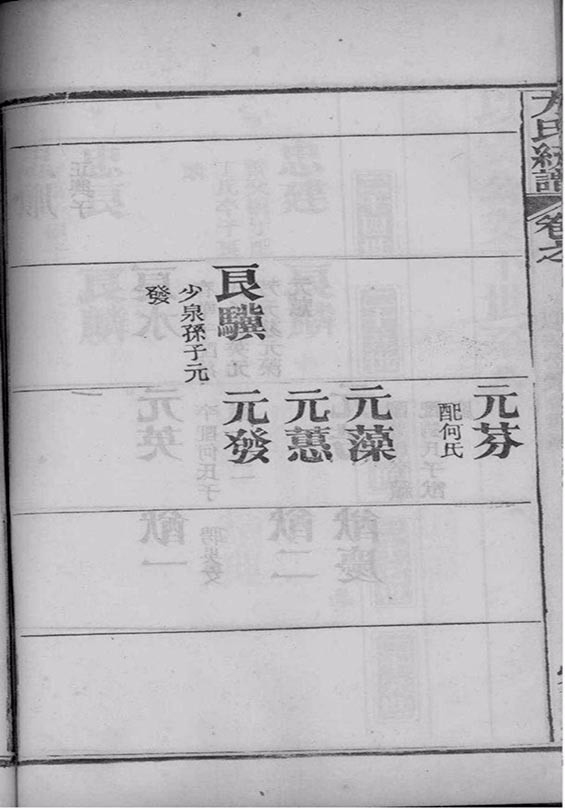 方氏統譜
卷之
元芬
配何氏
元藻
元蕙
良驥
少泉孫子元
發
元發